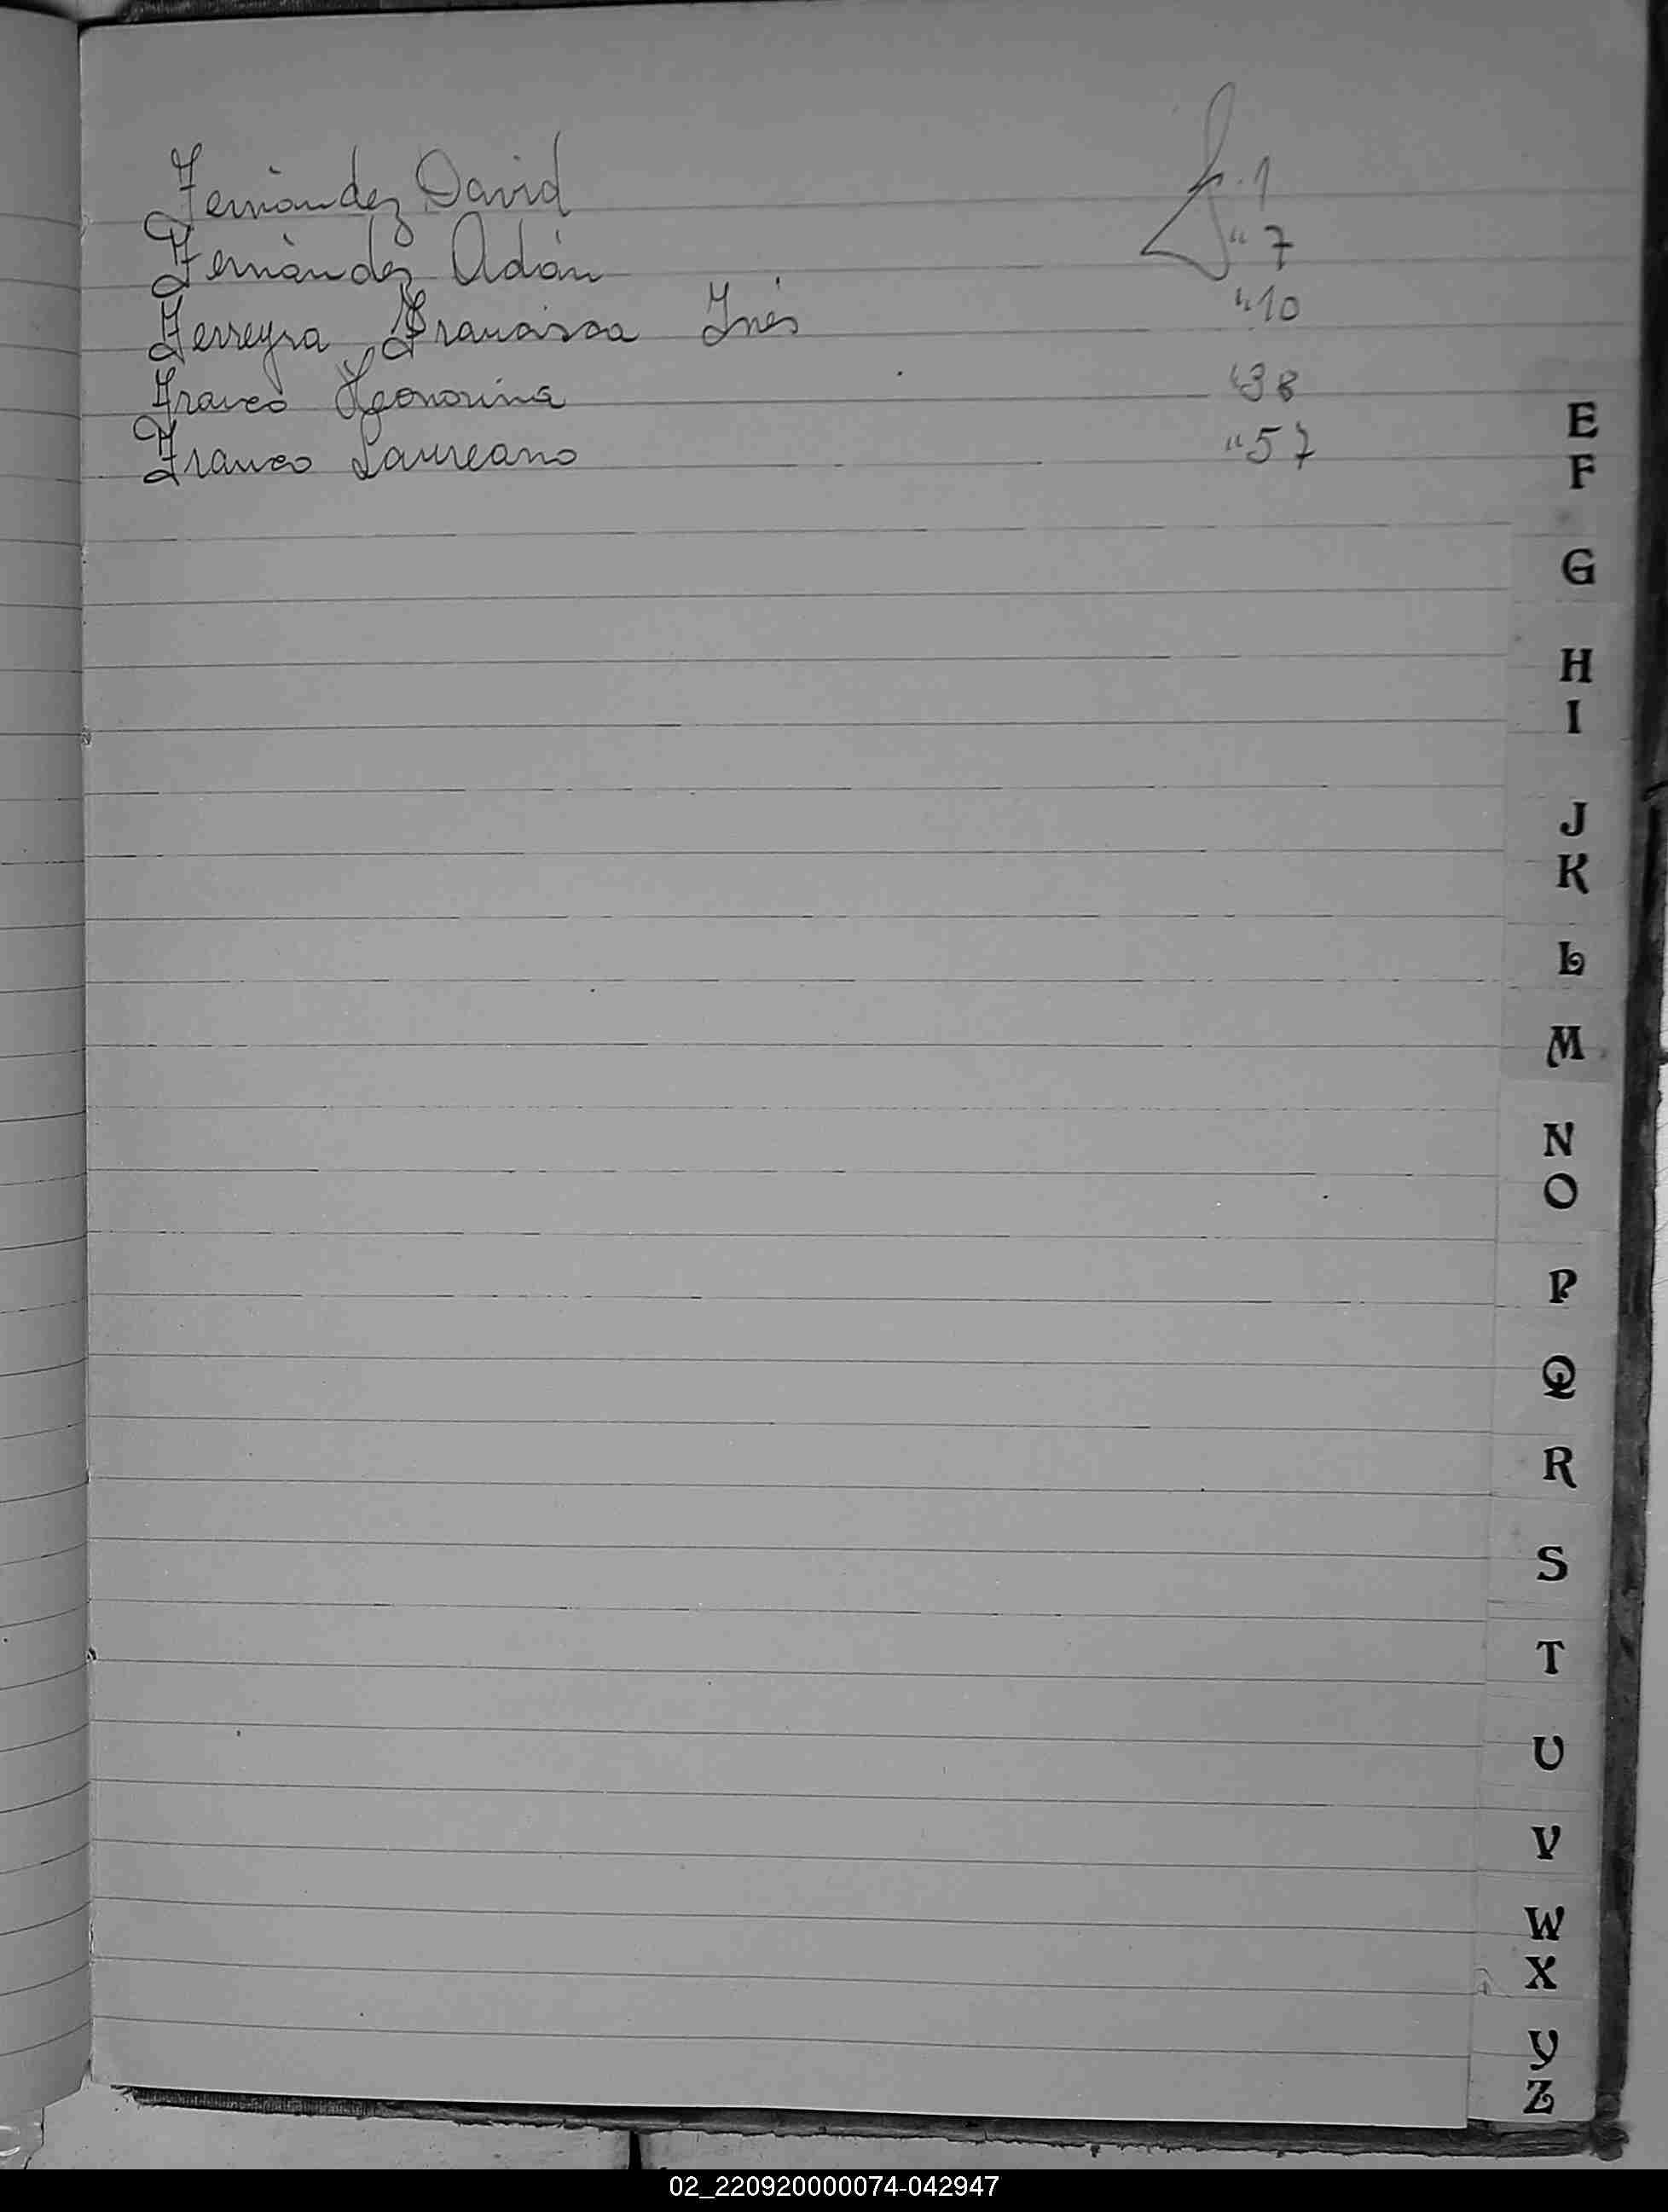 Fernàndez David f. 1
Fernàndez Adán " 7
Ferreyra Francisca Inés " 10
Franco Honorina " 38
Franco Laureano " 57
E
F
G
H
I
J
K
L
M
N
O
P
Q
R
S
T
U
V
W
X
Y
Z
02_220920000074-042947